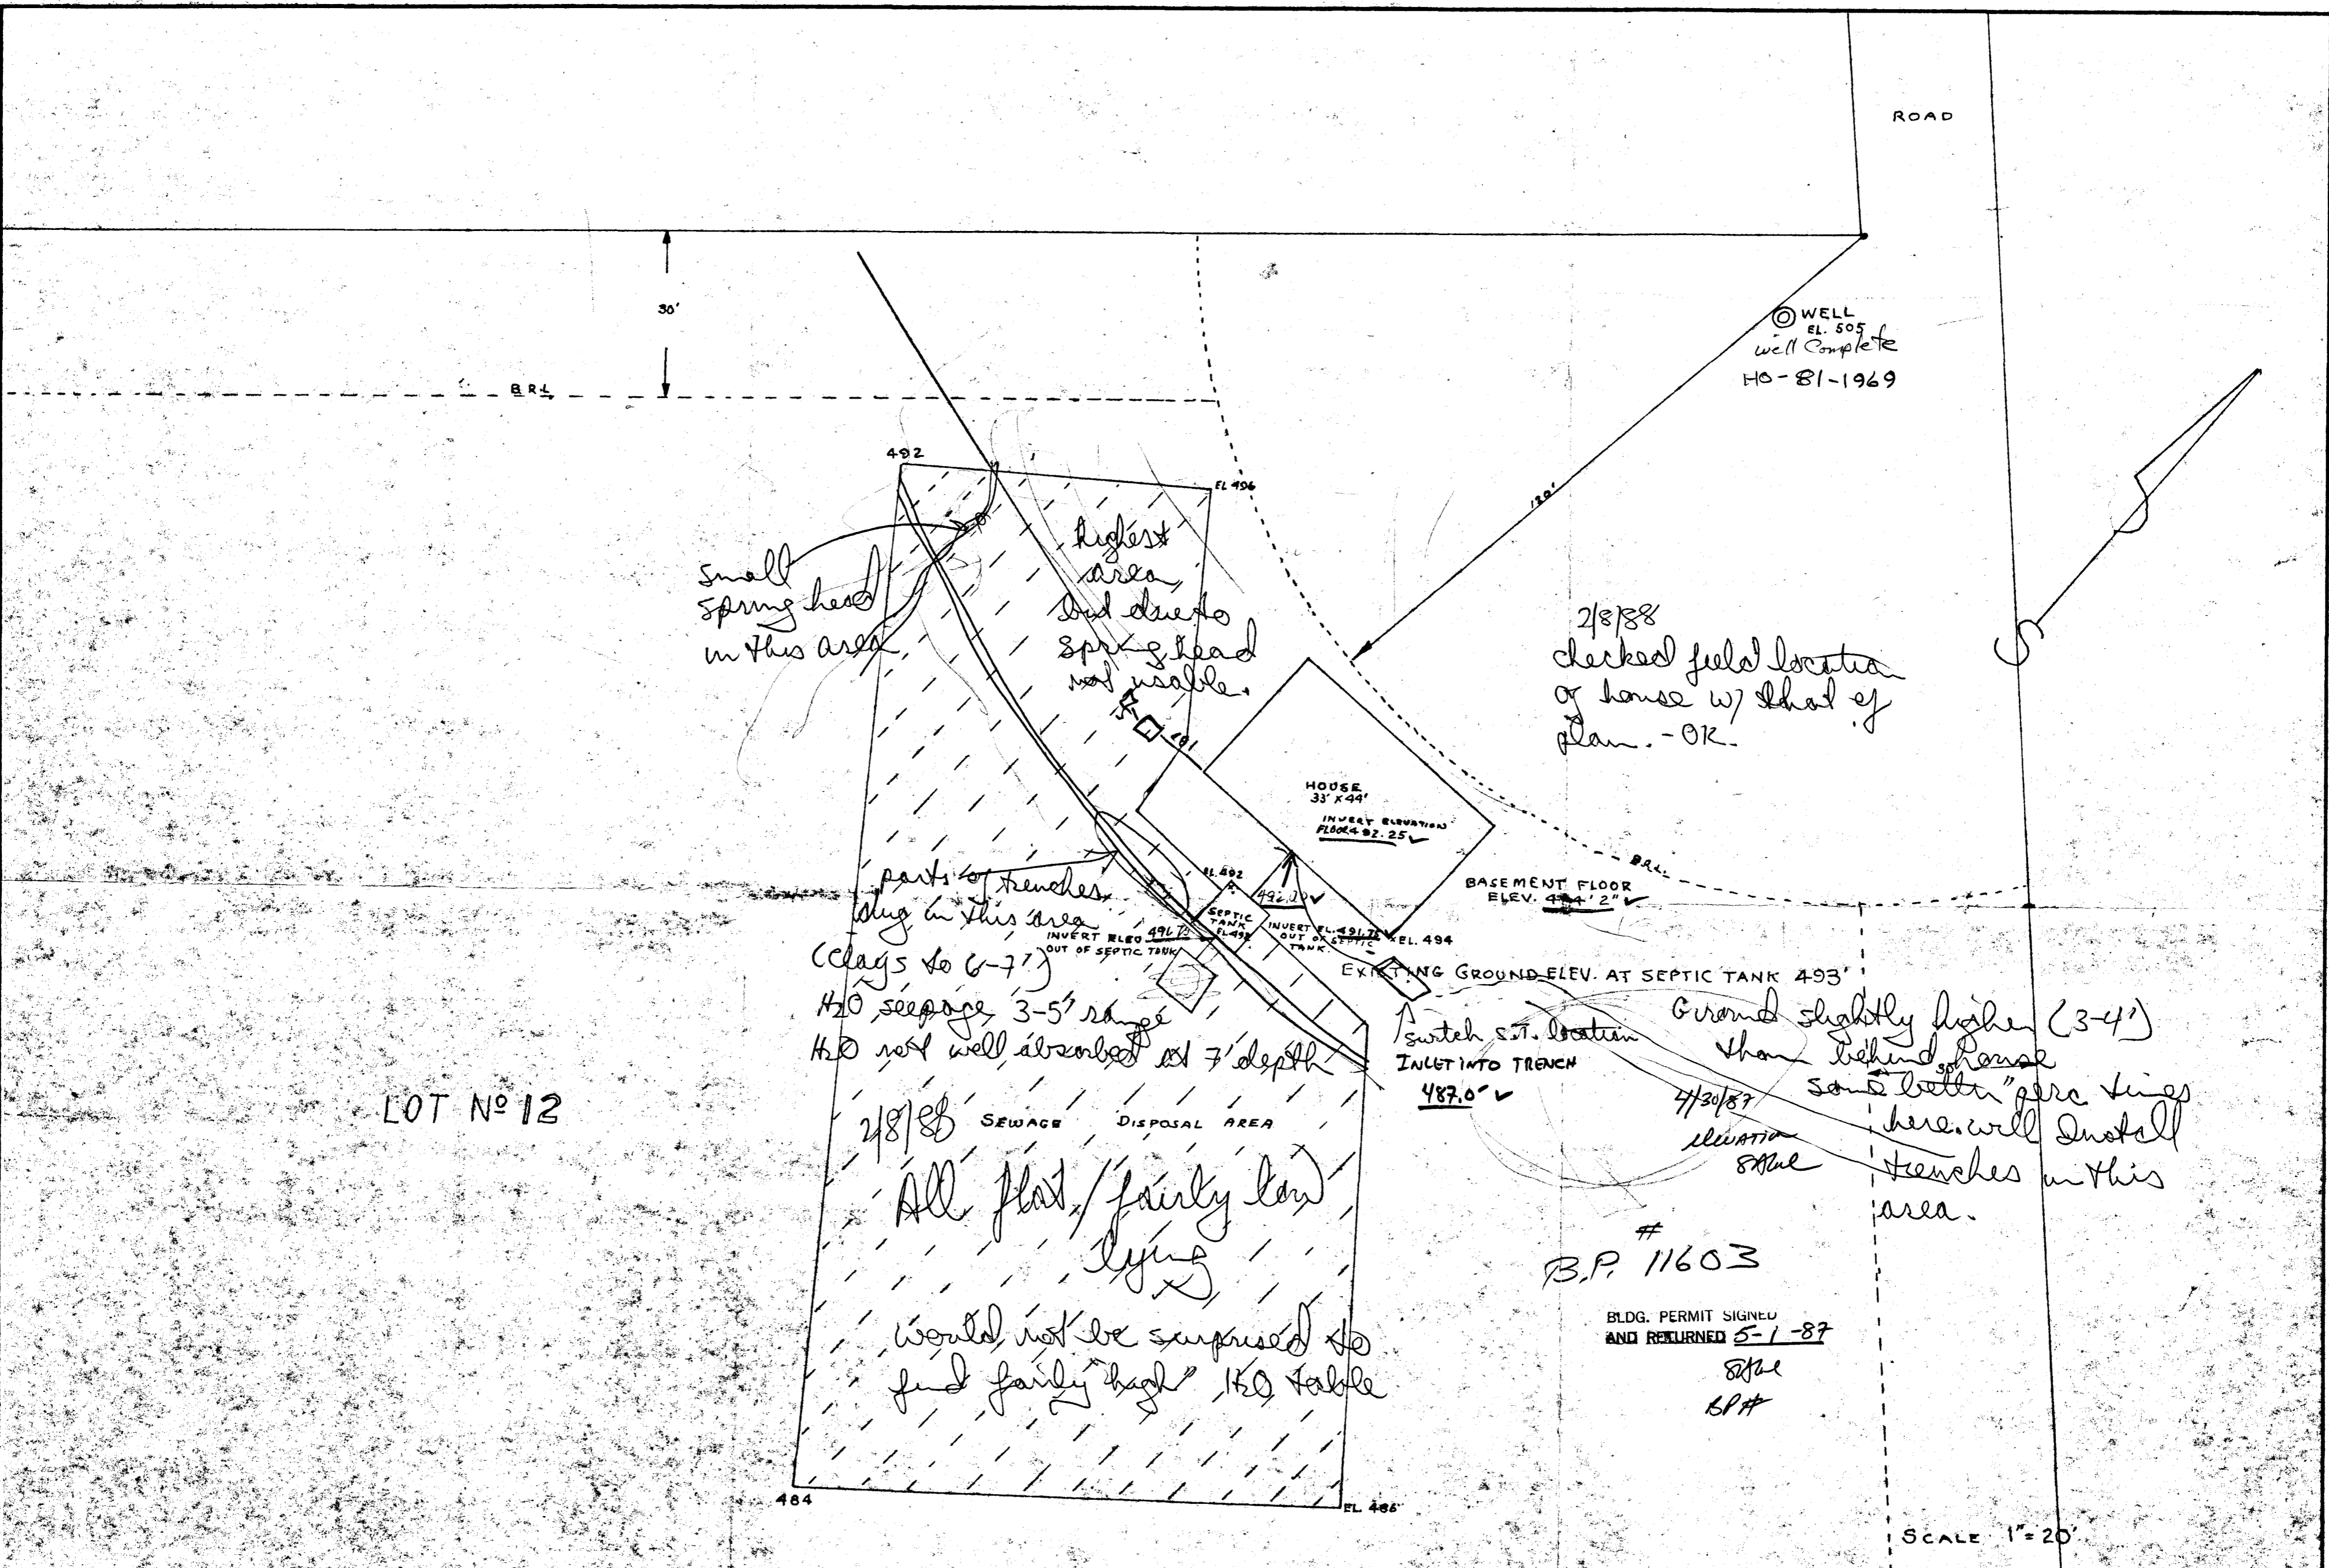 ROAD
30'
B.R.L.
WELL
EL. 505
well Complete
HO-81-1969
120'
492
EL 496
small
spring head
in this area
highest
area,
but due to
spring head
not usable.
2/8/88
checked field location
of house w/ that of
plan. - OK.
HOUSE
33' X 44'
INVERT ELEVATION
FLOOR 492.25 ✓
B.R.L.
BASEMENT FLOOR
ELEV. 494' 2" ✓
EL. 492
SEPTIC
TANK
INVERT EL. 491.75
OUT OF SEPTIC
TANK
EL. 494
parts of trenches
dug in this area
INVERT ELEV 491.75
OUT OF SEPTIC TANK
(clays to 6-7')
H2O seepage 3-5' range
H2O not well absorbed at 7' depth
EXISTING GROUND ELEV. AT SEPTIC TANK 493'
switch S.T. location
INLET INTO TRENCH
487.0' ✓
Ground slightly higher (3-4')
than behind house
some better "perc times
here. will install
trenches in this
area.
4/30/87
elevation
LOT Nº 12
2/8/88
SEWAGE DISPOSAL AREA
All flat / fairly low
lying
would not be surprised to
find fairly "high" H2O table
#
B.P. 11603
BLDG. PERMIT SIGNED
AND RETURNED 5-1-87
BP#
484
EL 486
SCALE 1"=20'